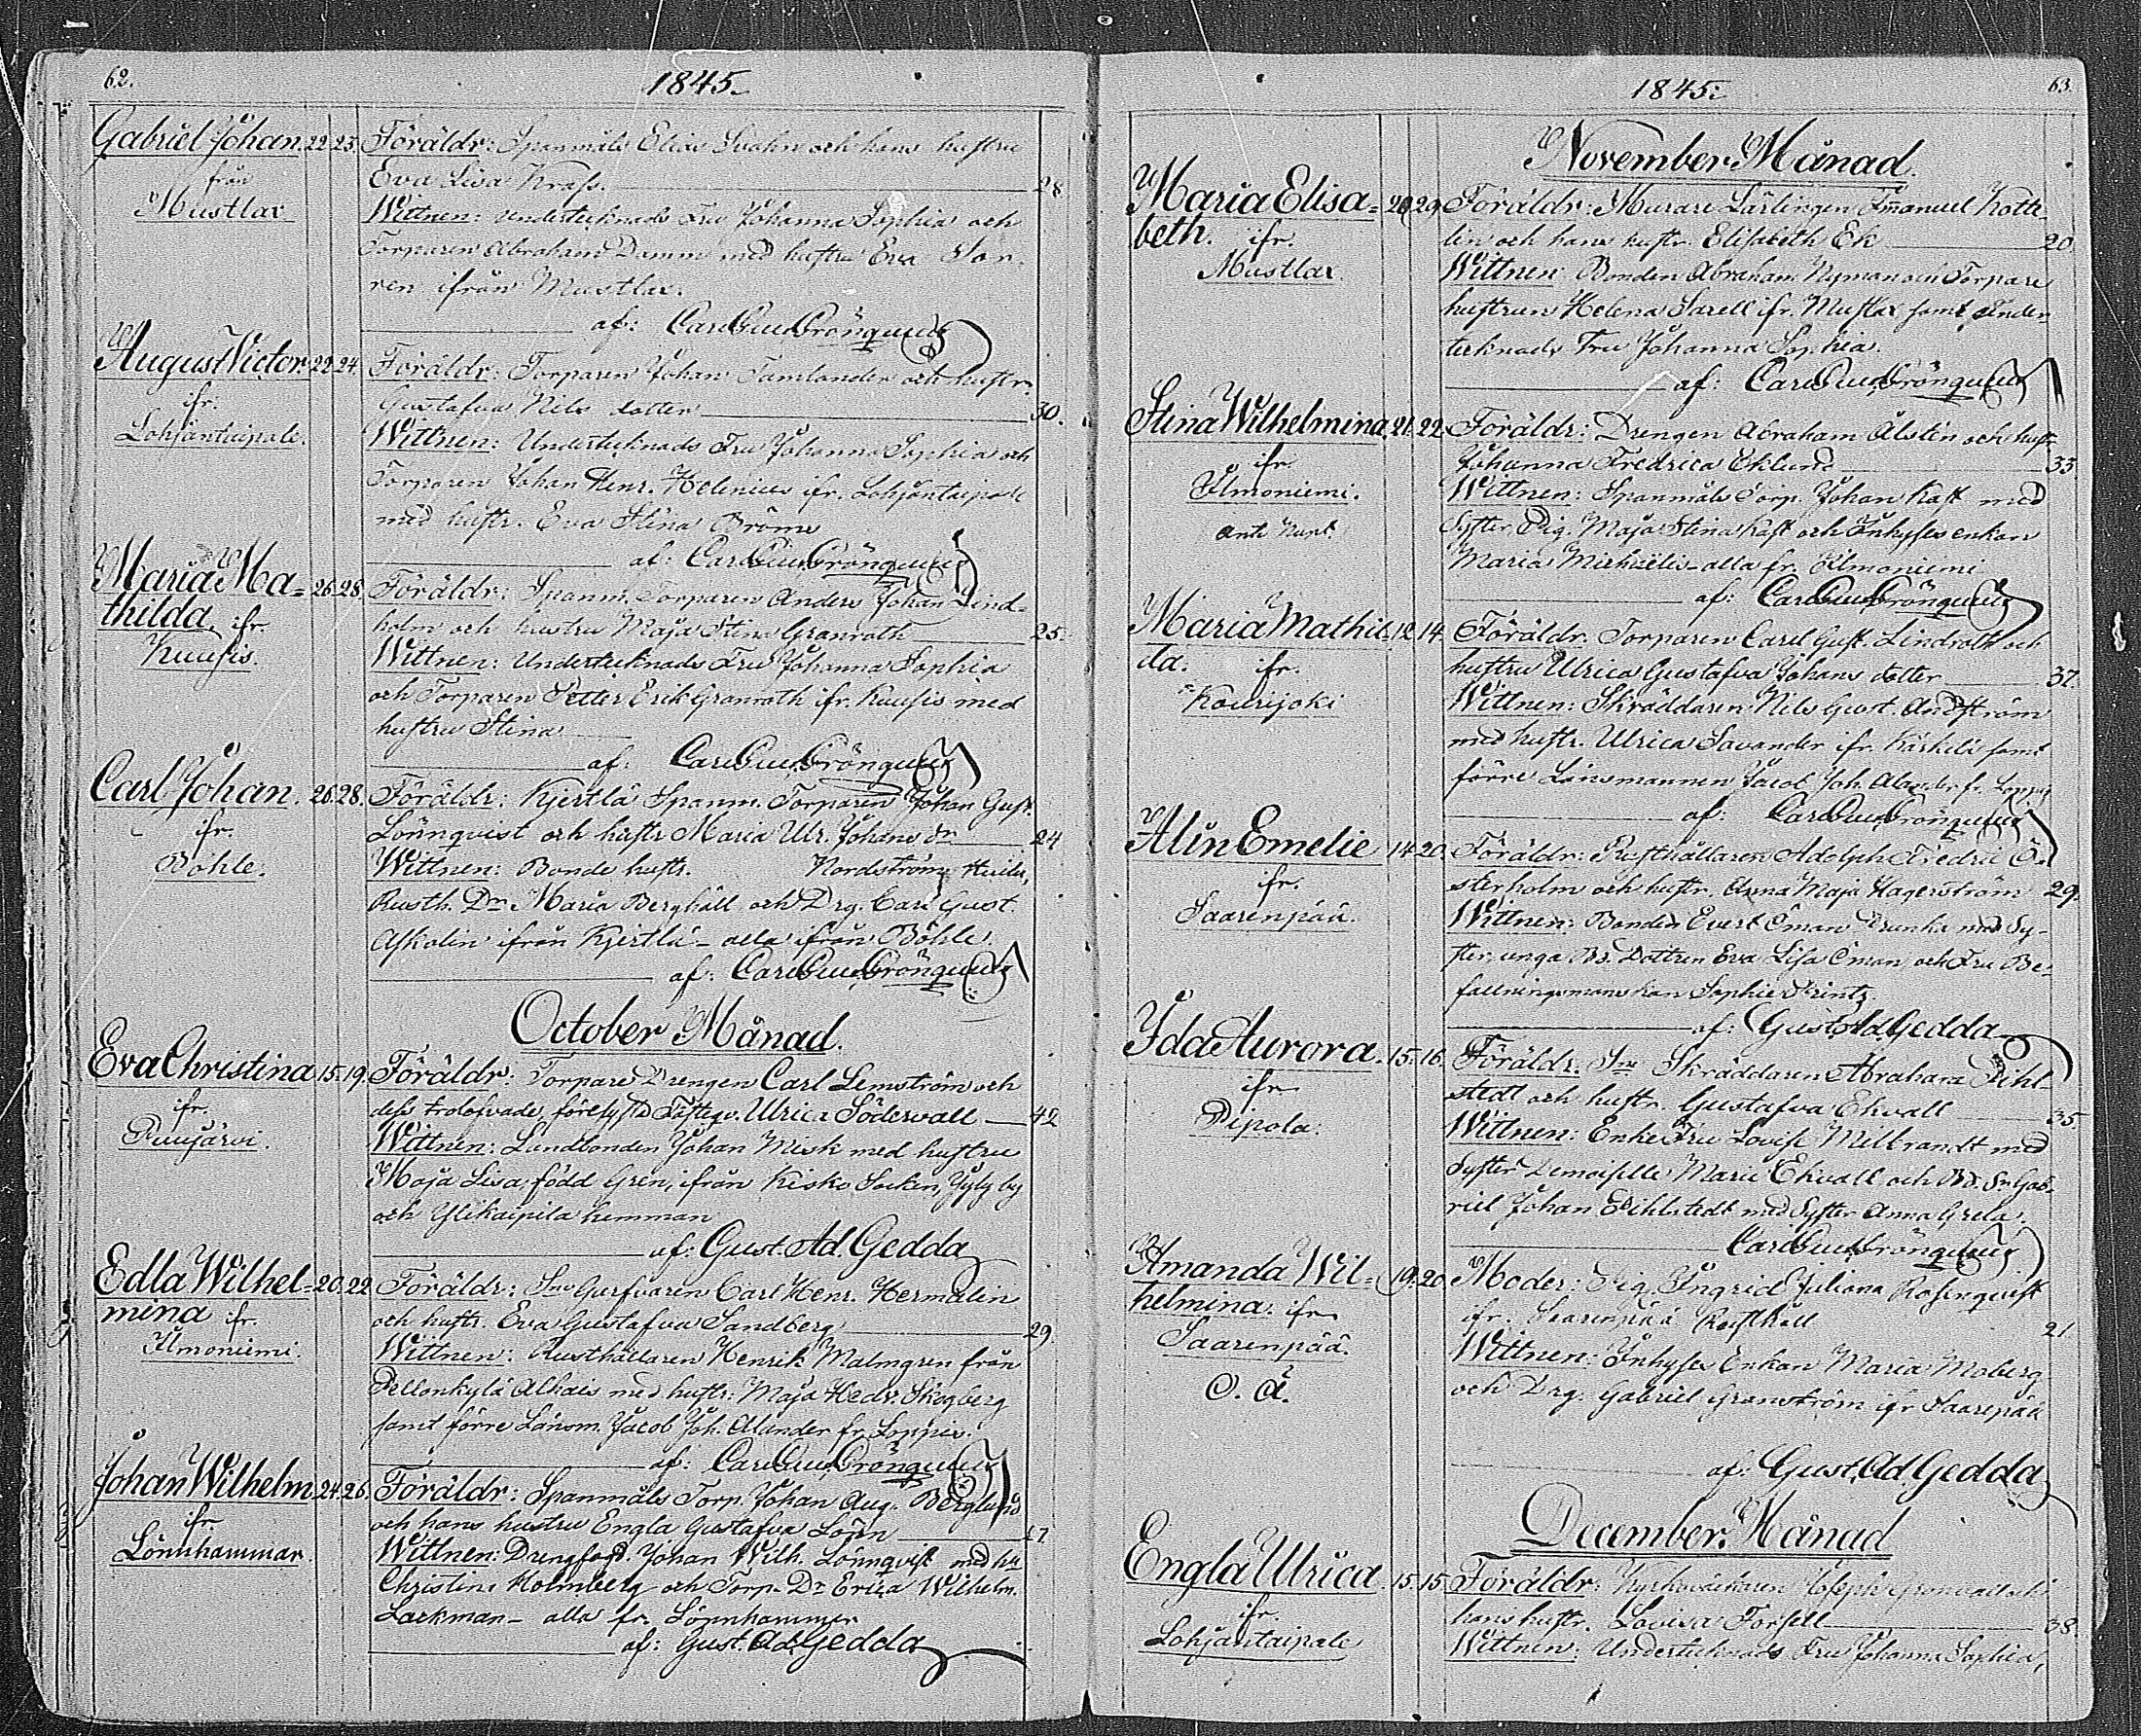 62.
1845.
Gabriel Johan 22. 25. Föräldr: Spanmåls Elias Svahn och hans hustru
från Eva Lisa Krass. 28
Mustlax Wittnen: undertecknads Fru Johanna Sophia och
Torparen Abraham Damm med hustru Eva
ren ifrån Mustlax.
af: Carl Gust. Grönqvist
August Victor 22. 24. Föräldr: Torparen Johan Tamlander och hustr.
ifr. Gustafva Nils dotter 30.
Lohjantaipale. Wittnen: Undertecknads Fru Johanna Sophia och
Torparen Johan Henr. Helenius ifr. Lohjantaipale
med hustr. Eva Stina Bröms
af: Carl Gust. Grönqvist
Maria Ma= 26. 28. Föräldr: Spanm. Torparen Anders Johan Lind-
thilda. ifr. holm och hustru Maja Stina Granroth 25.
Kuusis. Wittnen: Undertecknads Fru Johanna Sophia
och Torparen Petter Erik Granroth ifr. Kuusis med
hustru Stina
af: Carl Gust. Grönqvist
Carl Johan. 26. 28. Föräldr: Kjertlä Spanm. Torparen Johan Gust.
ifr. Lönnqvist och hustr Maria Ulr. Johans dr 24
Böhle. Wittnen: Bonde hustr. Nordström
Rusth. Dr Maria Berghäll och Drg. Carl Gust.
Askolin ifrån Kjertlä - alla ifrån Böhle.
af: Carl Gust. Grönqvist
October Månad.
Eva Christina 15. 19. Föräldr: Torpare Drengen Carl Lemström och
ifr. dess trolofvade, Fästeqv. Ulrica Södervall 42
Puujärvi. Wittnen: Landbonden Johan Misk med hustru
Maja Lisa född Gren, ifrån Kisko Socken, by
och Ylikaipila hemman
af: Gust. Ad. Gedda
Edla Wilhel= 20. 22. Föräldr: Snr Garfvaren Carl Henr. Hermalin
mina ifr. och hustr. Eva Gustafva Sandberg 29.
Ilmoniemi. Wittnen: Rusthållaren Henrik Malmgren från
Pellonkylä Alhais med hustr: Maja Hedv. Skogberg
samt förre Länsm. Jacob Joh. Alander fr. Loppis.
af: Carl Gust. Grönqvist
Johan Wilhelm 24. 26. Föräldr: Spanmåls Torp. Johan Aug. Berglund
ifr. och hans hustru Engla Gustafva Lönn
Lönnhammar. Wittnen: Drengfogd. Johan Wilh. Lönnqvist med hu
Christina Holmberg och Torp. Dr Erica Wilhelm.
Lackman - alla fr. Lönnhammar
af: Gust. Ad. Gedda
1845.
63.
November Månad.
Maria Elisa= 20. 29. Föräldr: Murare Lärlingen Emanuel Kotte-
beth. ifr. lin och hans hustr. Elisabeth Ek 20.
Mustlax. Wittnen: Bonden Abraham Nyman och Torpare
hustrun Helena Sarell ifr. Mustlax samt Under-
tecknads Fru Johanna Sophia.
af: Carl Gust. Grönqvist
Stina Wilhelmina 21. 22. Föräldr: Drengen Abraham Ålstén och hustr
ifr. Johanna Fredrica Eklund 33.
Ilmoniemi. Wittnen: Spanmåls Torp. Johan Kaft med
ante nupt. Syster Pig. Maja Stina Kaft och Inhyses enkan
Maria Michaëlis - alla fr. Ilmoniemi
af: Carl Gust. Grönqvist
Maria Mathil- 12. 14. Föräldr. Torparen Carel Gust. Lindroth och
da. ifr. hustru Ulrica Gustafva Johans dotter 37.
Kourijoki Wittnen: Skräddaren Nils Gust. Andström
med hustr. Ulrica Savander ifr. Kärkelä samt
förre Länsmannen Jacob Joh. Alander fr. Loppis
af: Carl Gust. Grönqvist
Alin Emelie 14. 20. Föräldr: Rusthållaren Adolph Fredric Ö-
ifr. sterholm och hustr. Anna Maja Hagerström 29.
Saarenpää. Wittnen: Bonden Evert Öman med Sy-
ster, unga Bd. Dottren Eva Lisa Öman, och Fru Be-
fallningsmanskan Sophie Printz.
af: Gust. Ad. Gedda
Ida Aurora. 15. 16. Föräldr. Snr Skräddaren Abraham Pihl-
ifr. stedt och hustr. Gustafva Ekvall 35.
Pipola. Wittnen: Enke Fru Lovise Milbrandt med
Syster Demoiselle Marie Ekvall och Bd. Sn Gab-
riel Johan Pihlstedt med Syster Anna Greta.
Carl Gust. Grönqvist
Amanda Wil= 19. 20. Moder: Pig. Ingrid Juliana Rosenqvist
helmina. ifr. ifr. Saarenpää Rusthåll 21.
Saarenpää. Wittnen: Inhyses Enkan Maria Moberg
O. ä. och Drg. Gabriel Granström ifr Saarepää
af: Gust. Ad. Gedda
December Månad
Engla Ulrica. 15. 15. Föräldr: Kyrkoväktaren Joseph Grönvall och
ifr. hans hustr. Lovisa Forsell 38.
Lohjantaipale Wittnen: Undertecknads Fru Johanna Sophia,